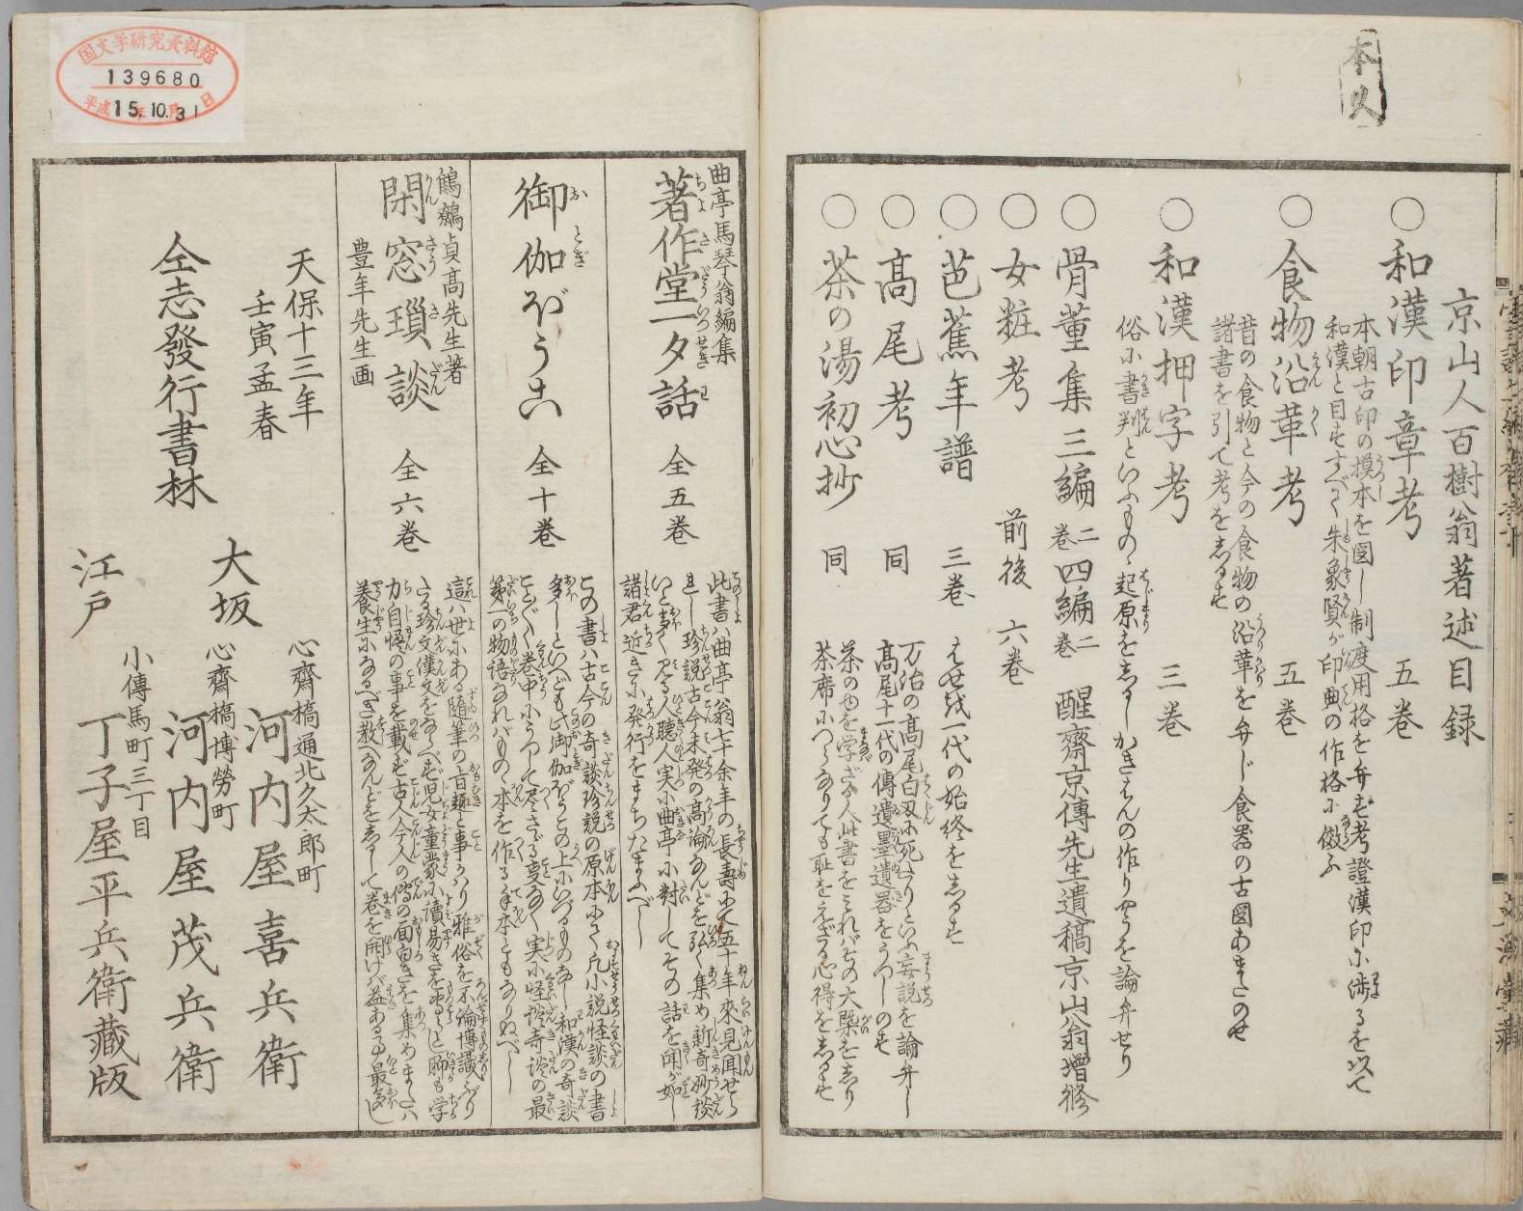 本又
京山人百樹翁著述目録
○和漢印章考 五巻
本朝古印の摸本を図し制度用格を弁じ考證漢印に渉るを以て
和漢と目すすべて朱象賢が印典の作格に傚ふ
○食物沿革考 五巻
昔の食物と今の食物の沿革を弁じ食器の古図あまたのせ
諸書を引て考をしるす
○和漢押字考 三巻
俗に書判といふものゝ起原をしるしかきはんの作りやうを論弁せり
○骨董集 三編二巻 四編二巻 醒齋京傳先生遺稿京山翁増修
○女粧考 前後 六巻
○芭蕉年譜 三巻 はせを一代の始終をしるす
○高尾考 同 万治の高尾白刄に死たりといふ妄説を論弁し
高尾十一代の傳遺墨遺器をうつしのす
○茶の湯初心抄 同 茶のゆを学ざる人此書をみればその大概をしり
茶席につらなりても恥をえざる心得をしるせ
曲亭馬琴翁編集
著作堂一夕話 全五巻
此書ハ曲亭翁七十余年の長壽にて五十年來見聞せら
れし珍説古今未発の高論なんどを弘く集め新奇妙談
いと多くみる人聴人実に曲亭に對してその話を聞が如し
諸君近きに発行をまちたまふべし
御伽ばうこ 全十巻
この書ハ古今の奇談珍説の原本にて凡小説怪談の書
多しといへども此御伽ばうこの上にいづるものなし和漢の奇談
ことごとく巻中にうつして尽さゞる事なく実に怪談奇談の最
第一の物語なれバもの本を作る手本ともなりぬべし
鷦鷯貞高先生著
閑窓瑣談 全六巻
豊年先生画
這ハ世にある随筆の旨趣と事かハり雅俗を不論博識ぶり
たる珍文漢文をならべず児女童蒙に讀易きを專らと聊も学
力自悟の事を載ず古人今人の傳の面白きを集めまたハ
養生になるべき教へなんどをしるして巻を開けバ益ある事最多し
天保十三年
壬寅孟春
仝志發行書林
大坂
心齋橋通北久太郎町
河内屋喜兵衛
心齋橋博勞町
河内屋茂兵衛
江戸
小傳馬町三丁目
丁子屋平兵衛藏版
国文学研究資料館
139680
平成15年10月31日